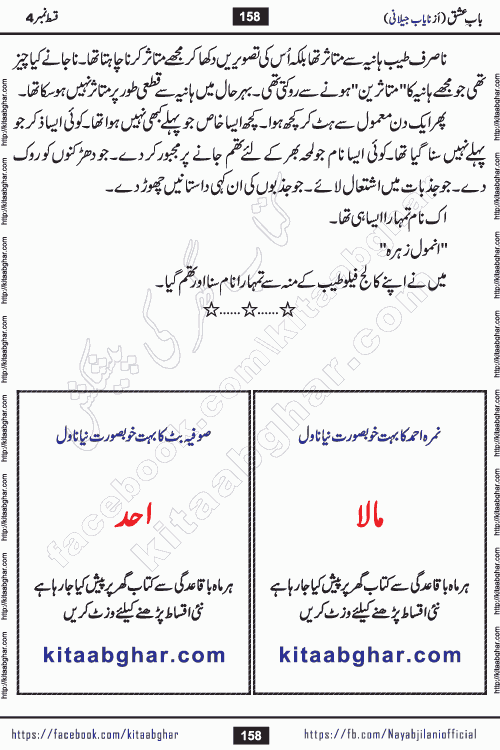 باب عشق (از نایاب جیلانی)
158
قسط نمبر 4
ناصرف طیب ہانیہ سے متاثر تھا بلکہ اُس کی تصویریں دکھا کر مجھے متاثر کرنا چاہتا تھا۔ نا جانے کیا چیز
تھی جو مجھے ہانیہ کا "متاثرین" ہونے سے روکتی تھی۔ بہر حال میں ہانیہ سے قطعی طور پر متاثر نہیں ہو سکا تھا۔
پھر ایک دن معمول سے ہٹ کر کچھ ہوا۔ کچھ ایسا خاص جو پہلے کبھی نہیں ہوا تھا۔ کوئی ایسا ذکر جو
پہلے نہیں سنا گیا تھا۔ کوئی ایسا نام جو لمحہ بھر کے لئے تھم جانے پر مجبور کر دے۔ جو دھڑکنوں کو روک
دے۔ جو جذبات میں اشتعال لائے۔ جو جذبوں کی ان کہی داستانیں چھوڑ دے۔
اک نام تمہارا ایسا ہی تھا۔
"انمول زہرہ"
میں نے اپنے کالج فیلو طیب کے منہ سے تمہارا نام سنا اور تھم گیا۔
☆......☆......☆
نمرہ احمد کا بہت خوبصورت نیا ناول
مالا
ہر ماہ باقاعدگی سے کتاب گھر پر پیش کیا جا رہا ہے
نئی اقساط پڑھنے کیلئے وزٹ کریں
kitaabghar.com
صوفیہ بٹ کا بہت خوبصورت نیا ناول
احد
ہر ماہ باقاعدگی سے کتاب گھر پر پیش کیا جا رہا ہے
نئی اقساط پڑھنے کیلئے وزٹ کریں
kitaabghar.com
کتاب گھر کی پیشکش
facebook.com/kitaabghar
kitaabghar.com
http://kitaabghar.com
https://facebook.com/kitaabghar
158
https://fb.com/Nayabjilaniofficial